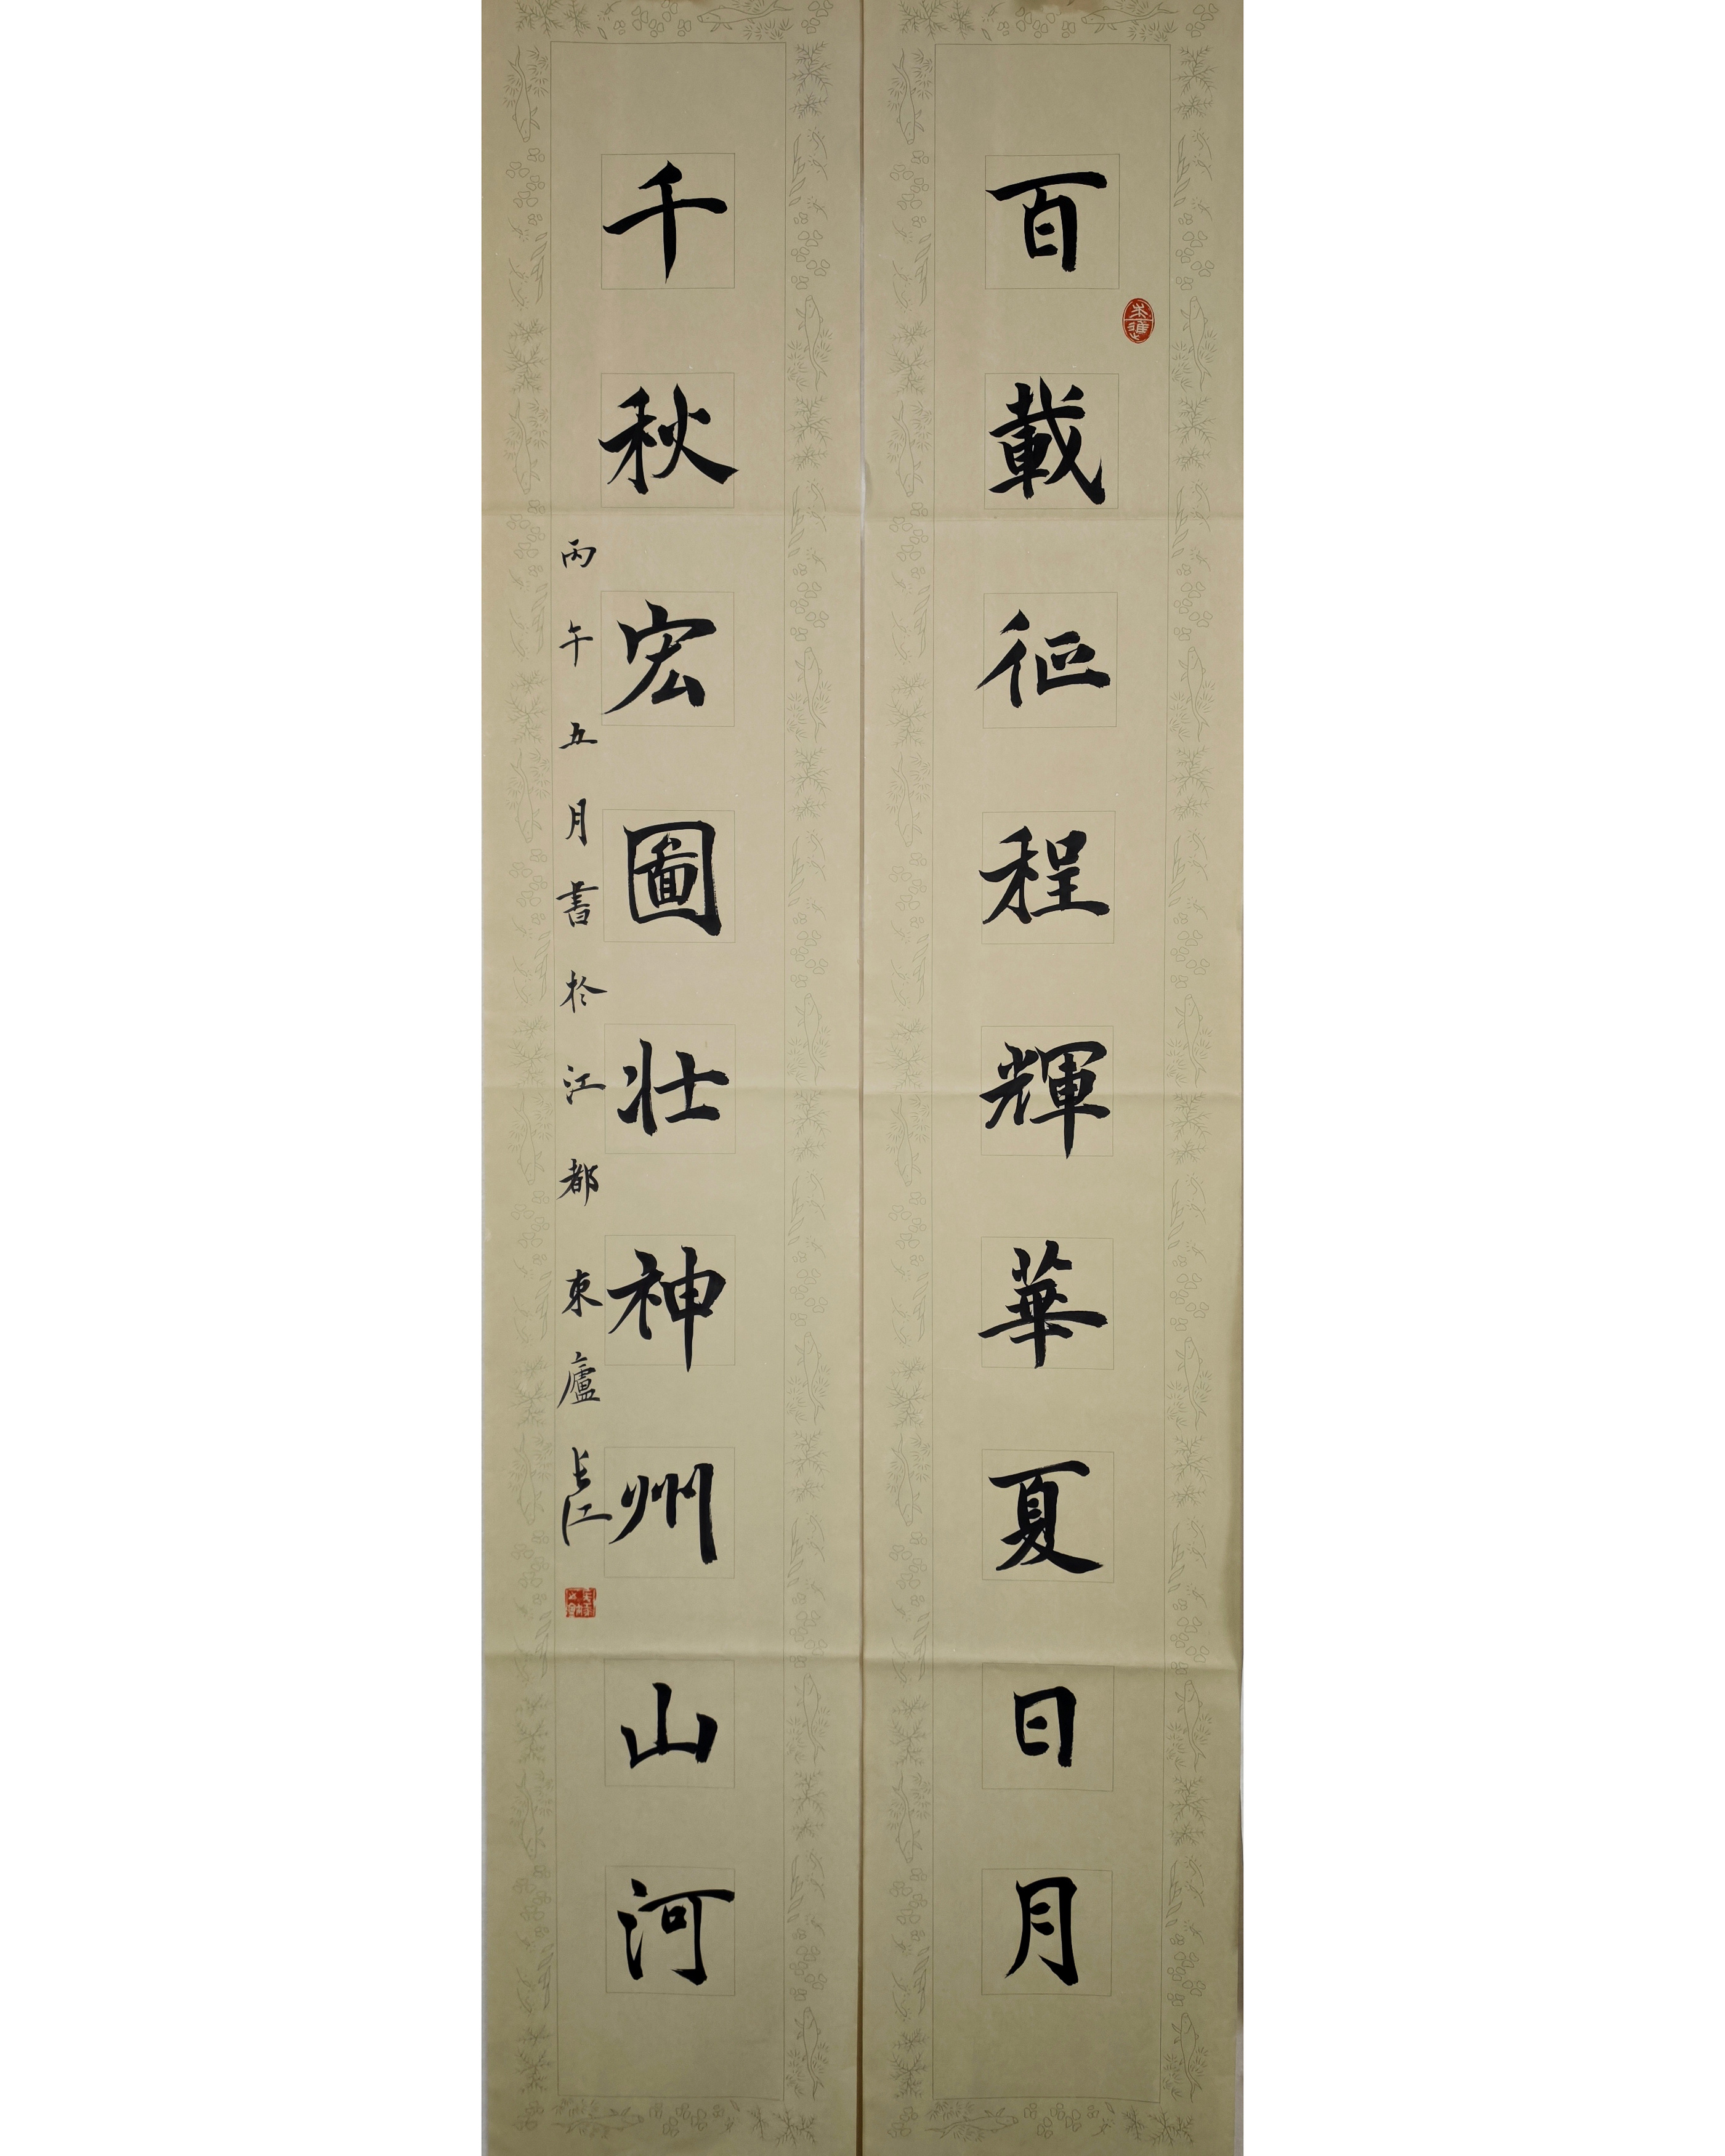 百載征程輝華夏日月
千秋宏圖壯神州山河
丙午五月書於江都東廬長江